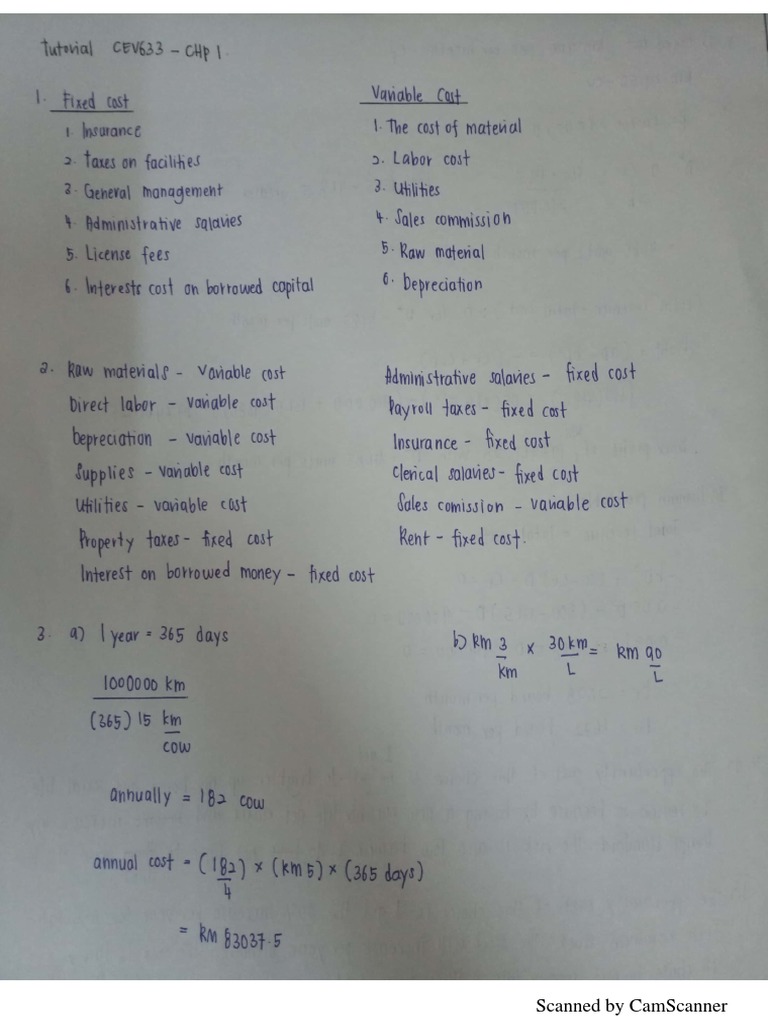 Tutorial CEV633 – CHP 1.
1. Fixed cost
1. Insurance
2. Taxes on facilities
3. General management
4. Administrative salaries
5. License fees
6. Interests cost on borrowed capital
Variable Cost
1. The cost of material
2. Labor cost
3. Utilities
4. Sales commission
5. Raw material
6. Depreciation
2. Raw materials – Variable cost
Direct labor – variable cost
Depreciation – variable cost
Supplies – variable cost
Utilities – variable cost
Property taxes – fixed cost
Interest on borrowed money – fixed cost
Administrative salaries – fixed cost
Payroll taxes – fixed cost
Insurance – fixed cost
Clerical salaries – fixed cost
Sales comission – variable cost
Rent – fixed cost.
3. a) 1 year = 365 days
1000000 km
(365) 15 km
cow
annually = 182 cow
annual cost = (182/4) × (RM 5) × (365 days)
= RM 83037.5
b) RM 3/km × 30 km/L = RM 90/L
Scanned by CamScanner